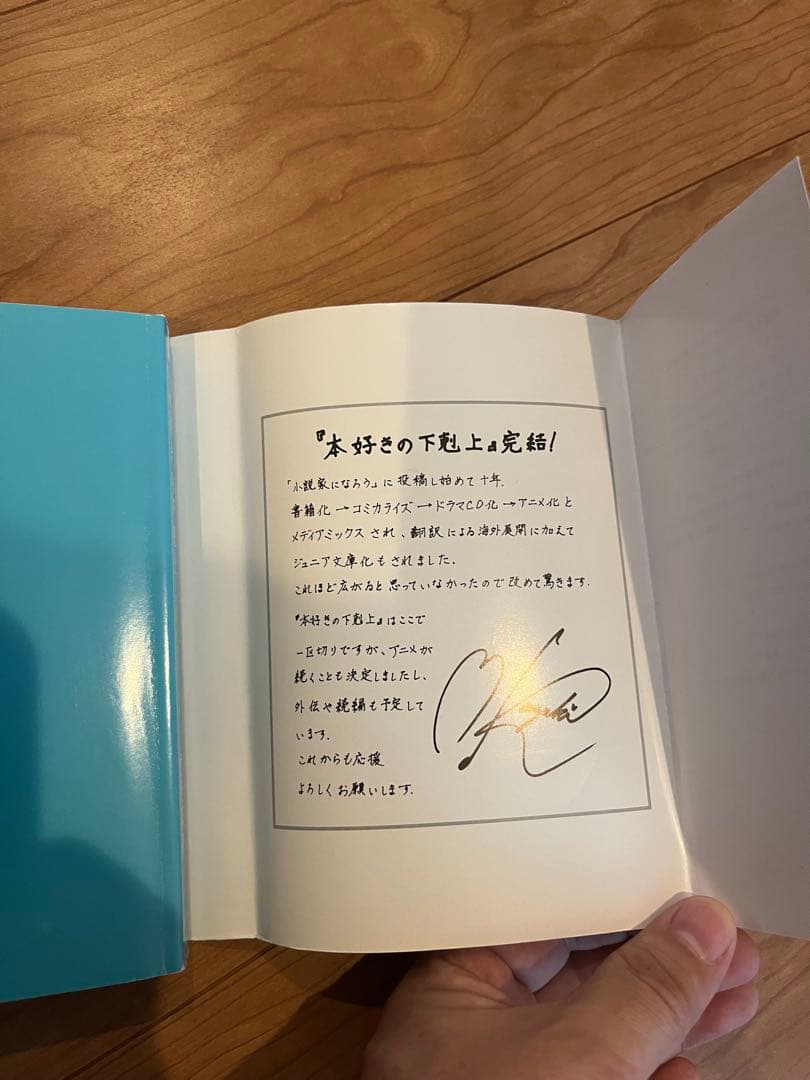 『本好きの下剋上』完結!
「小説家になろう」に投稿し始めて十年.
書籍化→コミカライズ→ドラマCD化→アニメ化と
メディアミックスされ、翻訳による海外展開に加えて
ジュニア文庫化もされました.
これほど広がると思っていなかったので改めて驚きます.
『本好きの下剋上』はここで
一区切りですが、アニメが
続くことも決定しましたし、
外伝や続編も予定して
います.
これからも応援
よろしくお願いします.